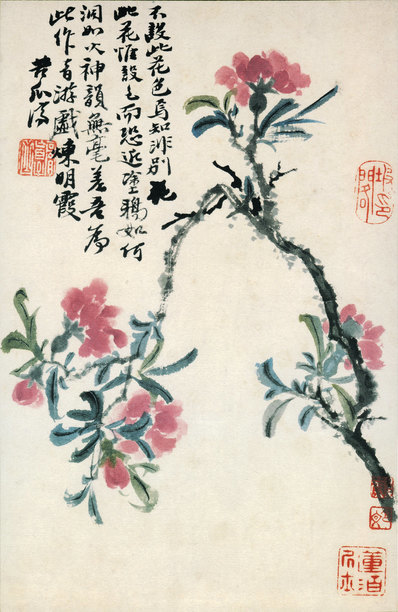 不設此花色焉知非別花
此花惟設之而恐近塗鴉如何
洞如火神韻無毫差吾為
此作者游戲煉明霞
苦瓜濟